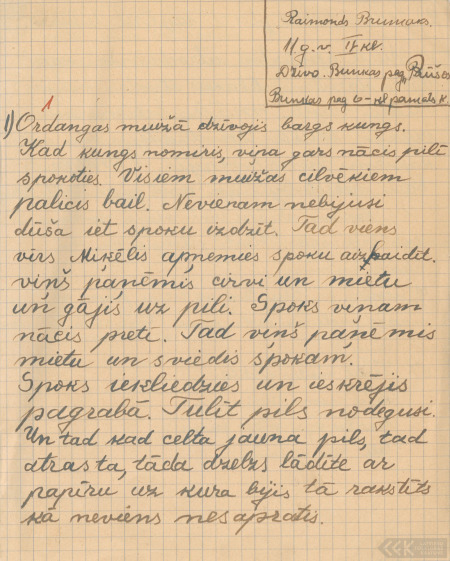 Raimonds Bunkaks.
11.g.v. IV kl.
Dzīvo. Bunkas pag.
Bunkas pag 6-kl pamatsk.
1
1) Ordangas muižā dzīvojis bargs kungs.
Kad kungs nomiris, viņa gars nācis pilī
spokoties. Visiem muižas cilvēkiem
palicis bail. Nevienam nebijusi
dūša iet spoku izdzīt. Tad viens
vīrs Miķēlis apņēmies spoku aizbaidīt.
viņš paņēmis cirvi un mietu
un gājis uz pili. Spoks viņam
nācis pretī. Tad viņš paņēmis
mietu un sviedis spokam.
Spoks iekliedzies un ieskrējis
pagrabā. Tūlīt pils nodegusi.
Un tad kad celta jauna pils, tad
atrasta, tāda dzelzs lādīte ar
papīru uz kura bijis tā rakstīts
kā neviens nesapratis.